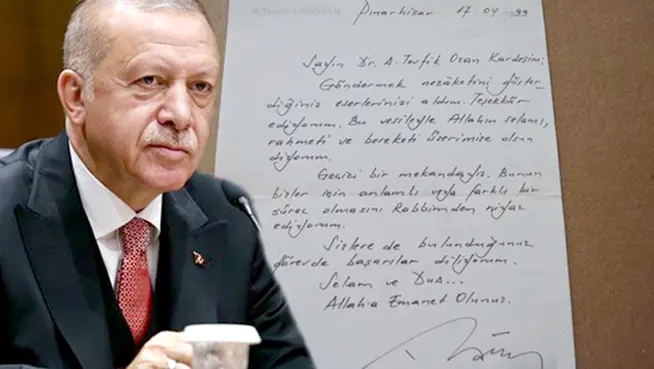 Pınarhisar 17.04.1999
Sayın Dr. A. Tevfik Ozan Kardeşim;
Göndermek nezâketini göster-
diğiniz eserlerinizi aldım. Teşekkür
ediyorum. Bu vesileyle Allahın selamı,
rahmeti ve bereketi üzerimize olsun
diyorum.
Geçici bir mekandayız. Bunun
bizler için anlamlı veya farklı bir
süreç olmasını Rabbimden niyaz
ediyorum.
Sizlere de bulunduğunuz
görevde başarılar diliyorum.
Selam ve Dua...
Allah'a Emanet Olunuz.